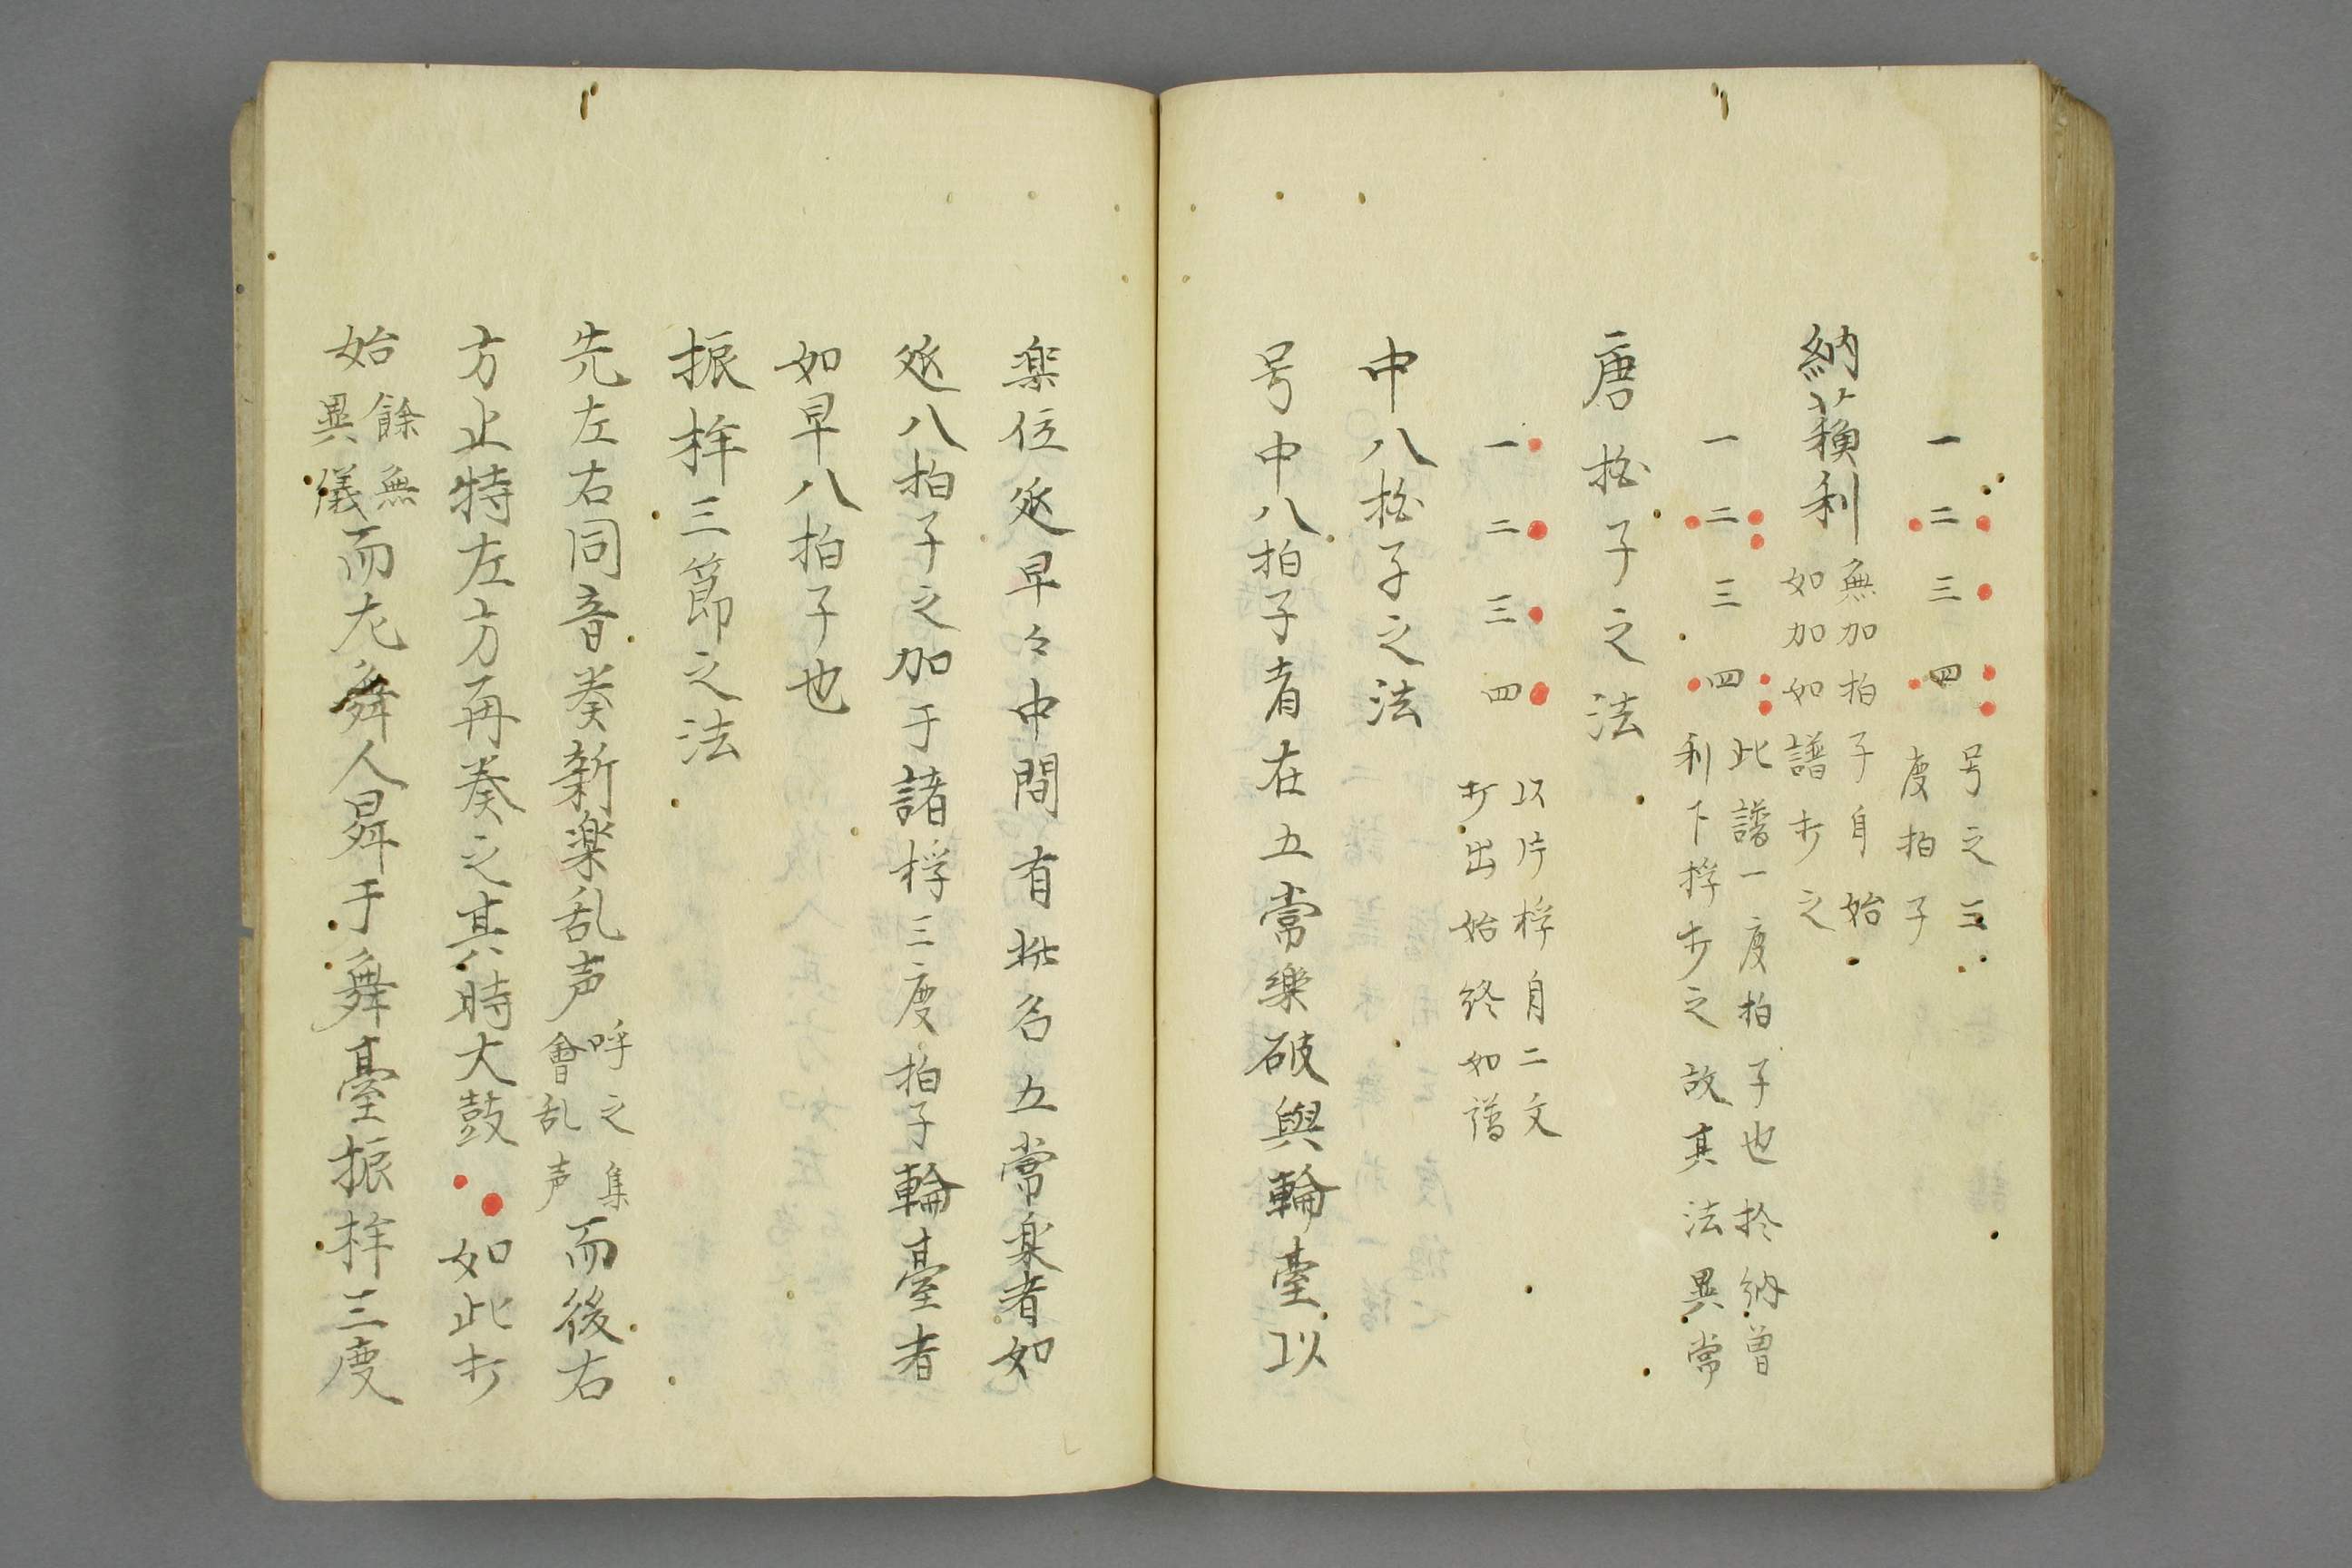 一 二 三 四 号之三度拍子
納蘓利 無加拍子自始如加如譜打之
一 二 三 四 此譜一度拍子也於納曽利下桴打之故其法異常
唐拍子之法
一 二 三 四 以片桴自二文打出始終如譜
中八拍子之法
号中八拍子者在五常樂破與輪臺以
楽位延早々中間有此名五常楽者如
延八拍子之加于諸桴三度拍子輪臺者
如早八拍子也
振桙三節之法
先左右同音奏新楽乱声 呼之集會乱声 而後右
方止特左方再奏之其時大鼓 如此打
始 餘無異儀 而左舞人昇于舞臺振桙三度